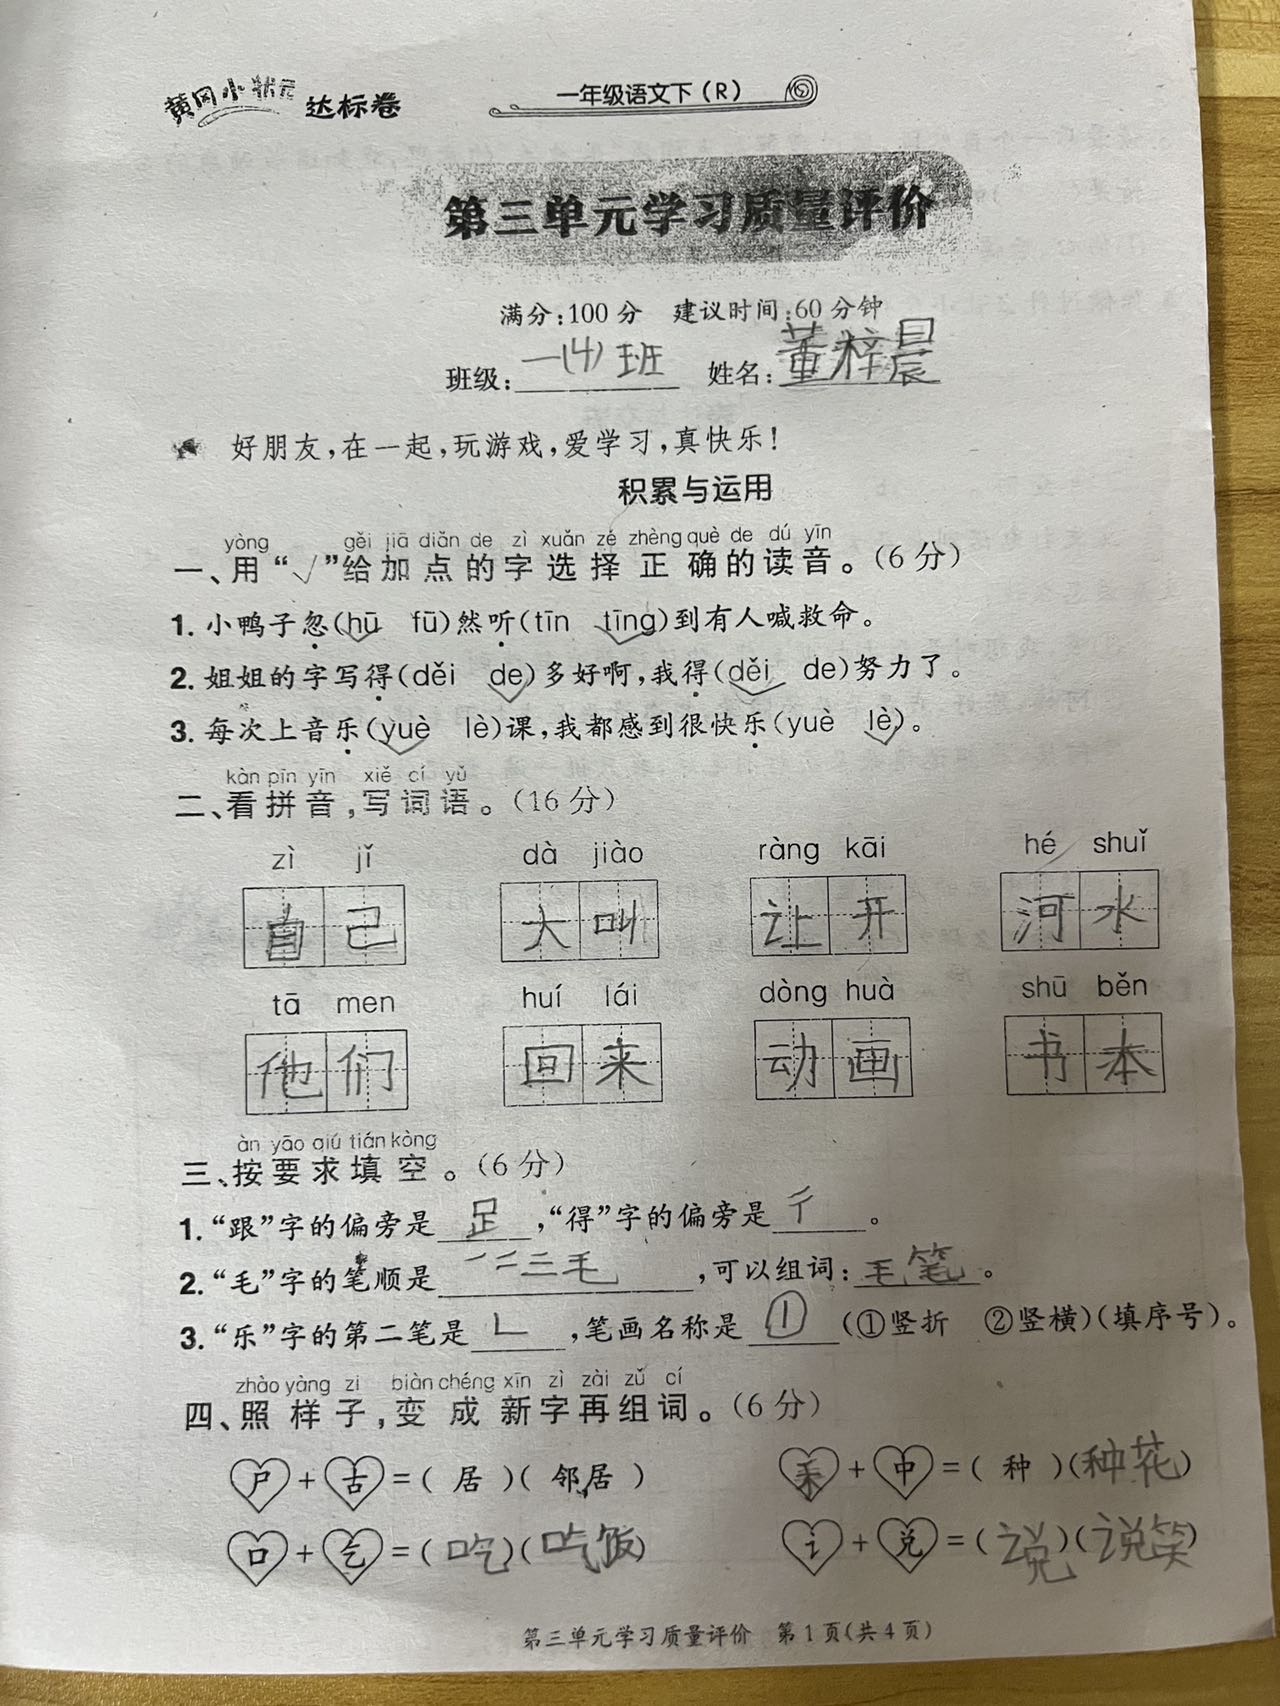 黄冈小状元 达标卷
一年级语文下(R)
第三单元学习质量评价
满分:100分 建议时间:60分钟
班级: 一(4)班 姓名: 董梓晨
好朋友,在一起,玩游戏,爱学习,真快乐!
积累与运用
yòng gěi jiā diǎn de zì xuǎn zé zhèng què de dú yīn
一、用“√”给加点的字选择正确的读音。(6分)
1. 小鸭子忽(hū fū)然听(tīn tīng)到有人喊救命。
2. 姐姐的字写得(děi de)多好啊,我得(děi de)努力了。
3. 每次上音乐(yuè lè)课,我都感到很快乐(yuè lè)。
kàn pīn yīn xiě cí yǔ
二、看拼音,写词语。(16分)
zì jǐ dà jiào ràng kāi hé shuǐ
自己 大叫 让开 河水
tā men huí lái dòng huà shū běn
他们 回来 动画 书本
àn yāo qiú tián kòng
三、按要求填空。(6分)
1. “跟”字的偏旁是 𧾷 ,“得”字的偏旁是 彳 。
2. “毛”字的笔顺是 ㇒ 二 三 毛 ,可以组词: 毛笔 。
3. “乐”字的第二笔是 ㇄ ,笔画名称是 ① (①竖折 ②竖横)(填序号)。
zhào yàng zi biàn chéng xīn zì zài zǔ cí
四、照样子,变成新字再组词。(6分)
尸+古=( 居 )( 邻居 ) 禾+中=( 种 )(种花)
口+乞=(吃)(吃饭) 讠+兑=(说)(说笑)
第三单元学习质量评价 第1页(共4页)